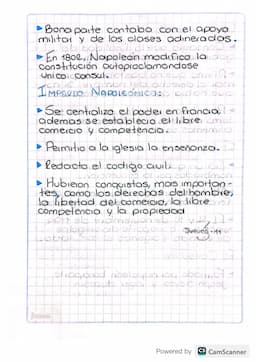 ▸ Bonaparte contaba con el apoyo
militar y de las clases adineradas.
▸ En 1802, Napoleón modifico la
constitución autoproclamondose
unico consul.
IMPERIO NAPOLEONICO:
▸ Se centraliza el poder en Francia,
ademas se establecio el libre
comercio y competencia.
▸ Permitio a la iglesia la enseñanza.
▸ Redacto el codigo civil.
▸ Hubieron conquistas, mas importan-
tes, como los derechos del hombre,
la libertad del comercio, la libre
competencia y la propiedad
Jueves-11
Powered by CS CamScanner